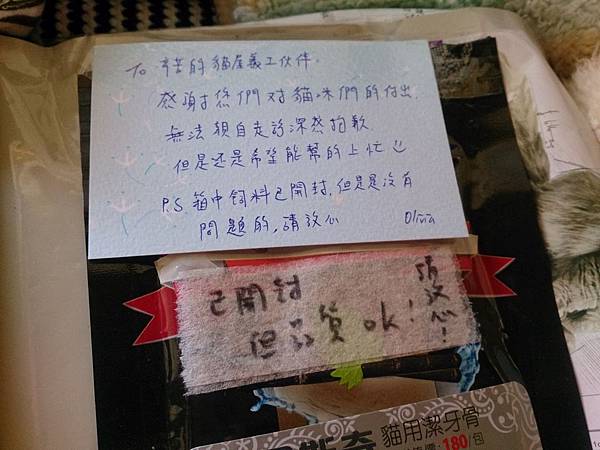 To 辛苦的貓屋義工伙伴.
感謝你們对貓咪們的付出.
無法親自走訪深感抱歉
但是還是希望能幫的上忙
P.S. 箱中飼料已開封,但是是沒有
問題的,請放心 Olivia
已開封
但品質 ok!
請放心!
貓用潔牙骨
180/包